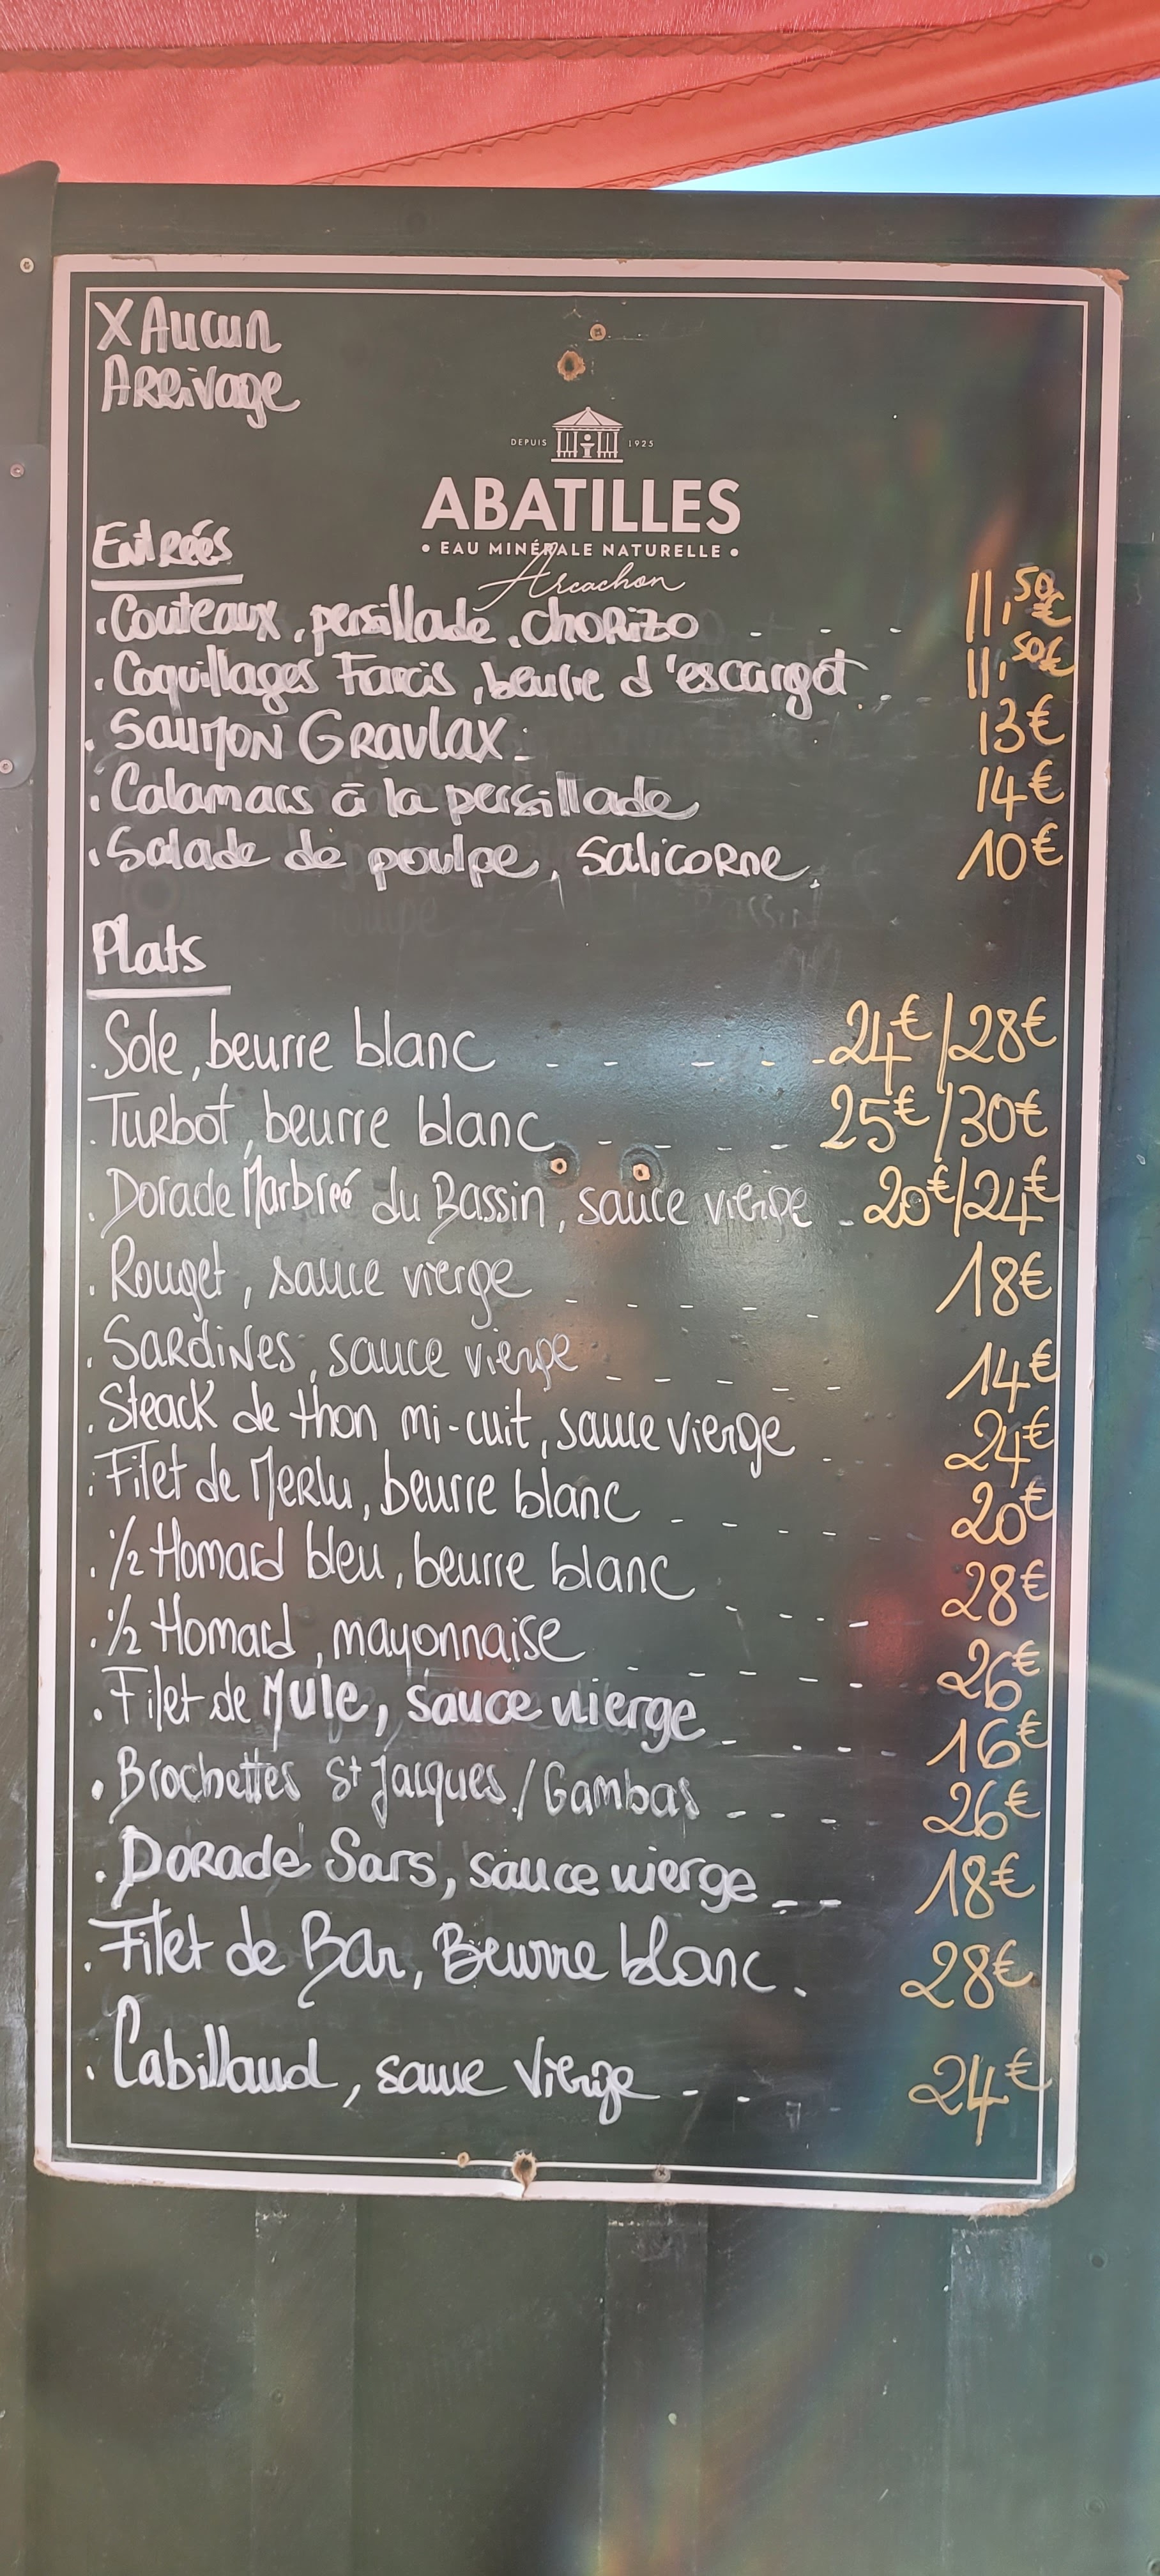 X Aucun
Arrivage
DEPUIS 1925
ABATILLES
• EAU MINÉRALE NATURELLE •
Arcachon
Entrées
. Couteaux, persillade, chorizo - - - 11,50€
. Coquillages Farcis, beurre d'escargot . 11,50€
. Saumon Gravlax 13€
. Calamars à la persillade 14€
. Salade de poulpe, Salicorne. 10€
Plats
. Sole, beurre blanc - - - - - - 24€/28€
. Turbot, beurre blanc - - - - 25€/30€
. Dorade Marbreé du Bassin, sauce vierge - 20€/24€
. Rouget, sauce vierge - - - - - 18€
. Sardines, sauce vierge - - - - - 14€
. Steack de thon mi-cuit, sauce vierge - - - 24€
. Filet de Merlu, beurre blanc - - - - - 20€
. 1/2 Homard bleu, beurre blanc - - - - 28€
. 1/2 Homard, mayonnaise - - - - - 26€
. Filet de Mule, sauce vierge - - - - 16€
. Brochettes St Jacques / Gambas - - - - 26€
. Dorade Sars, sauce vierge - - - 18€
. Filet de Bar, Beurre blanc . 28€
. Cabillaud, sauce Vierge - - - 24€